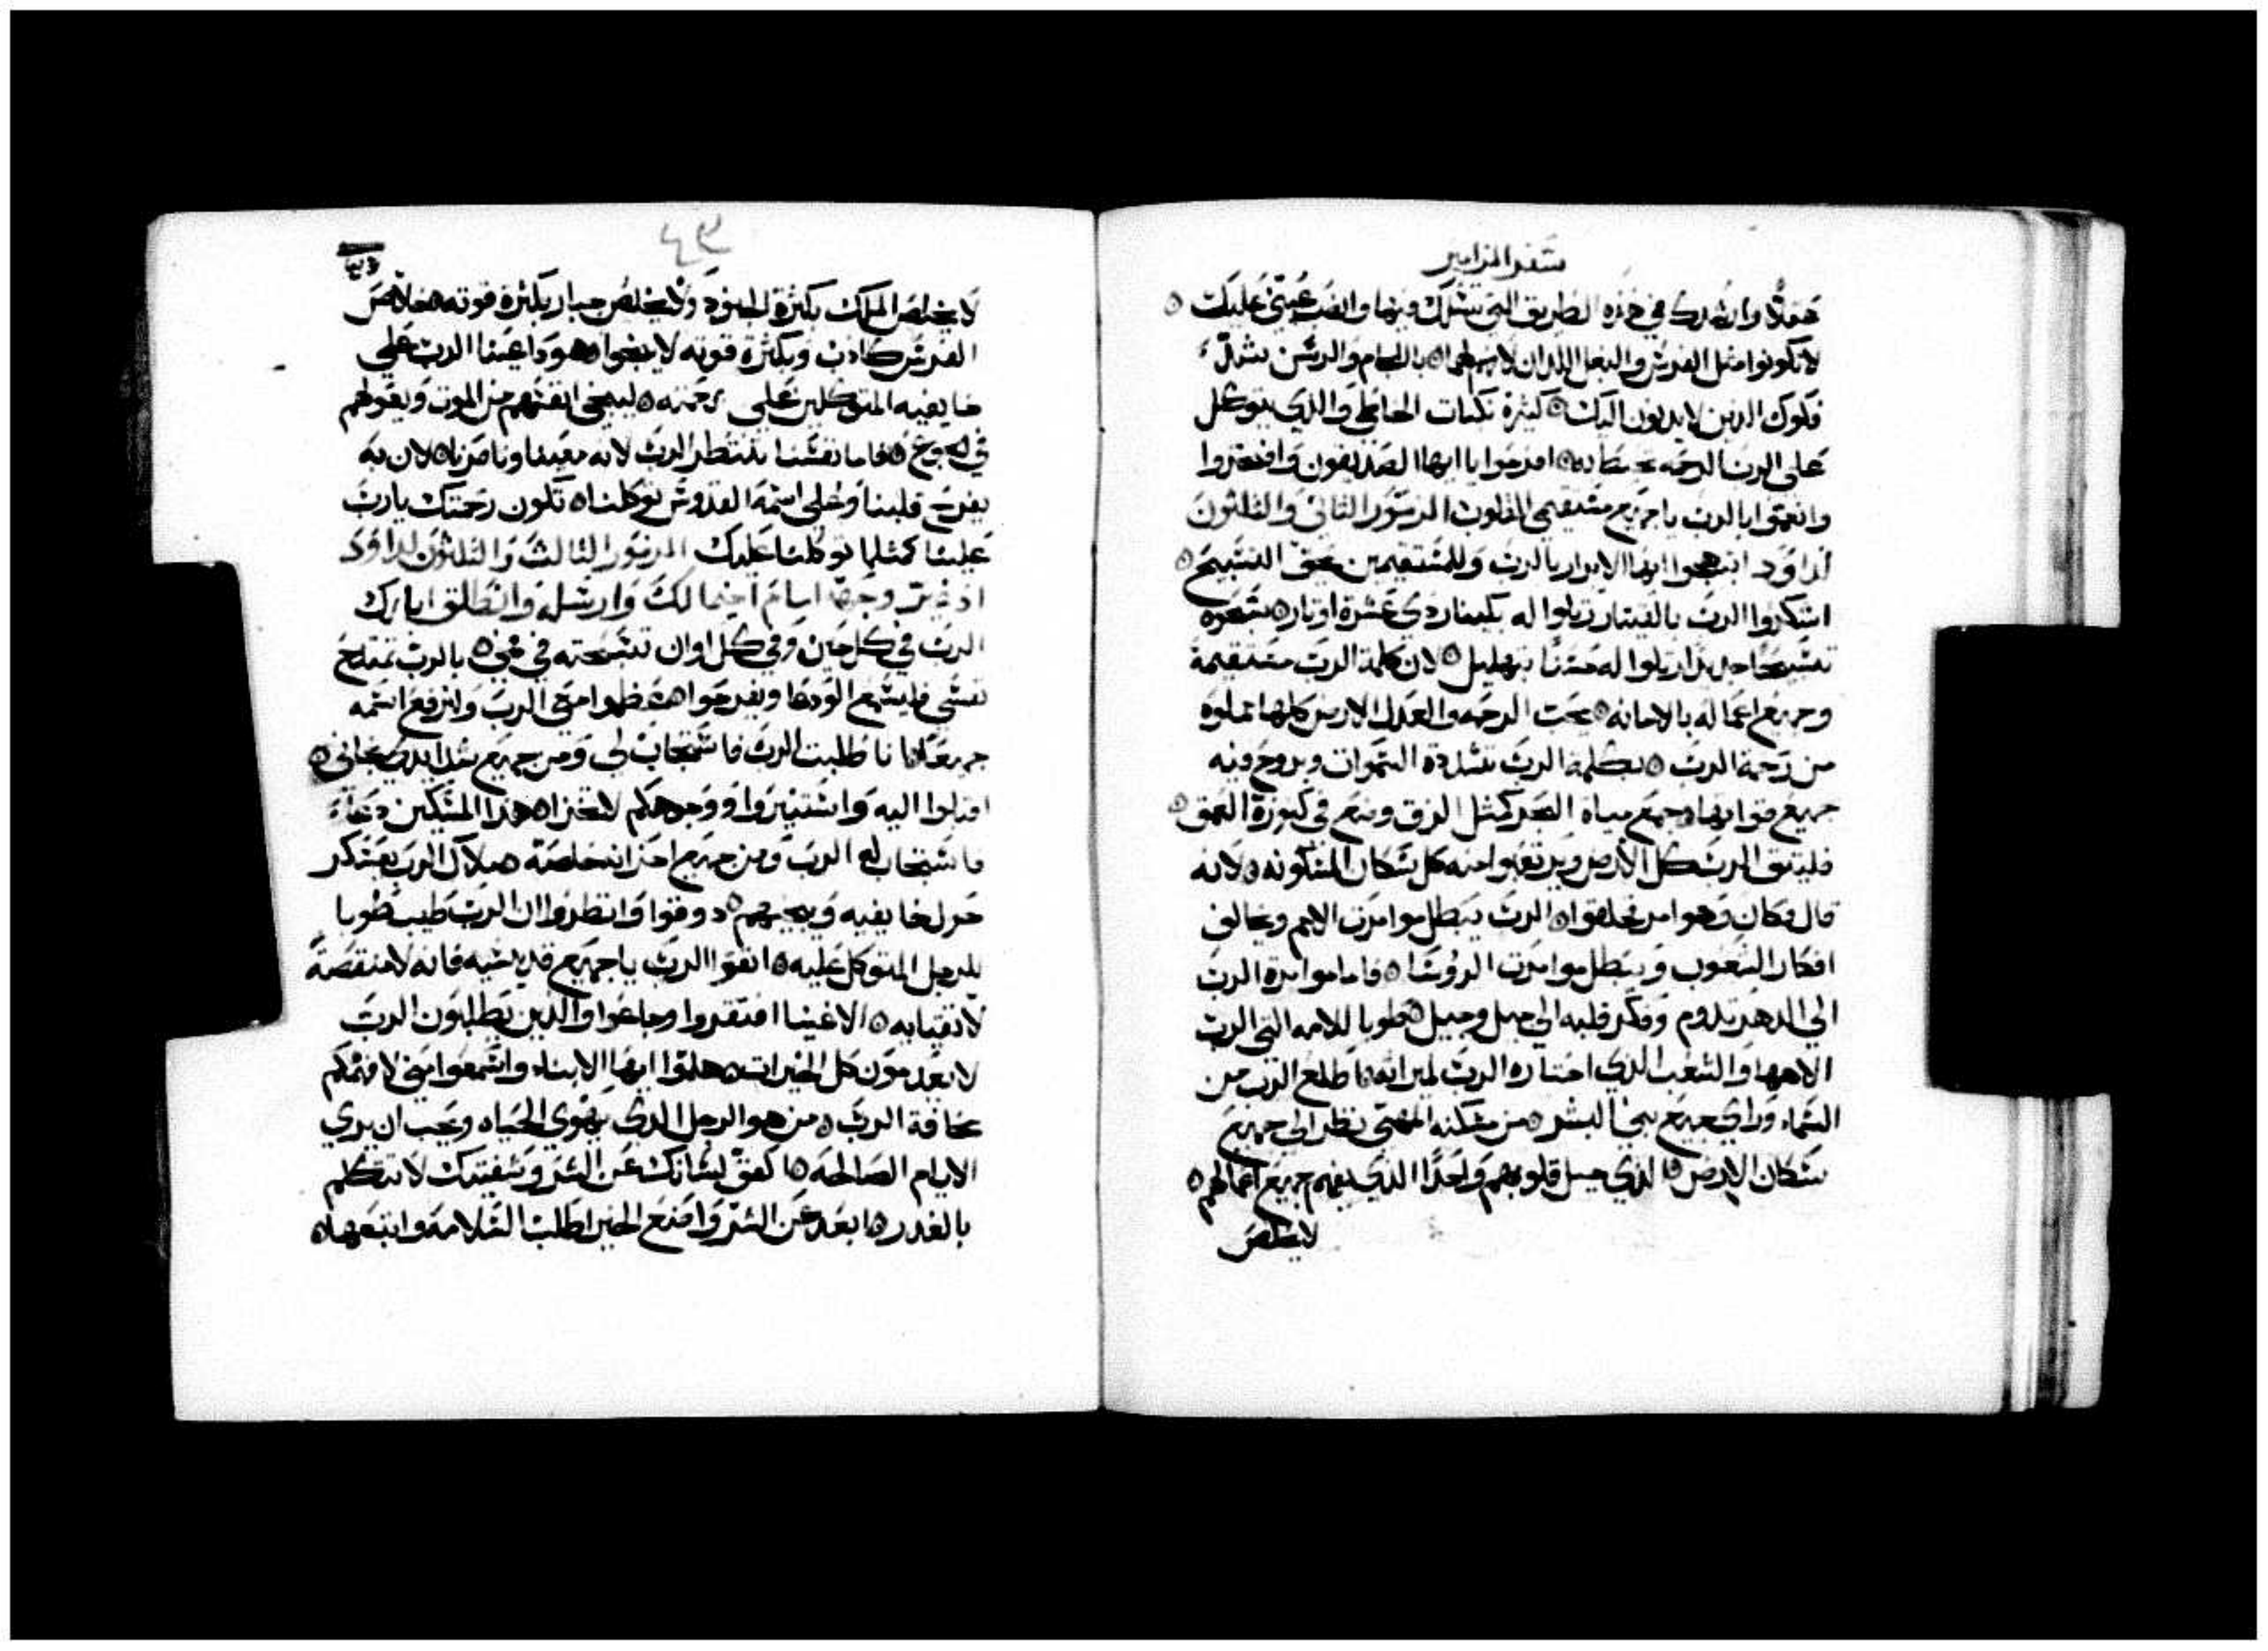 سفر المزامير
عقلًا وارشدك في هذه الطريق التي تسلك فيها وانصب عيني عليك ۞
لا تكونوا مثل الفرس والبغل اللدان لا فهم لهما ۞ باللجام والرسن تشد
فكوك الدين لا يدنون اليك ۞ كثيرة نكبات الخاطي والدي يتوكل
على الرب الرحمه تحيط به ۞ افرحوا يا ايها الصديقون وافتخروا
وانعموا بالرب يا جميع مستقيمي القلوب المزمور الثاني والثلثون
لداوود ابتهجوا ايها الابرار بالرب وللمستقيمين يحق التسبيح ۞
اشكروا الرب بالقيتار رتلوا له بكينار دي عشرة اوتار ۞ سبحوه
تسبيحا جديدا رتلوا له حسنًا بتهليل ۞ لان كلمة الرب مستقيمة
وجميع اعماله بالامانه ۞ يحب الرحمه والعدل الارض كلها مملوه
من رحمة الرب ۞ بكلمة الرب تشددة السموات وبروح فيه
جميع قواتها ۞ جمع مياه البحر كمثل الزق وضع في كنوزة العمق ۞
فليتق الرب كل الارض ويرتعبوا منه كل سكان المسكونه ۞ لانه
قال فكان وهو امر فخلقوا ۞ الرب يبطل موامرت الامم ويخالف
افكار الشعوب ويبطل موامرت الروسا ۞ فاما موامرة الرب
الي الدهر تدوم وفكر قلبه الي جيل وجيل ۞ طوبا للامه التي الرب
الاهها والشعب الدي اختاره الرب لميراته ۞ اطلع الرب من
السماء وراي جميع بني البشر ۞ من مسكنه المهيى نظر الي جميع
سكان الارض ۞ الدي جبل قلوبهم واحدًا الدي يفهم جميع اعمالهم ۞
لا يخلص
٤٣
لا يخلص الملك بكثرة الجنود ولا يخلص جبار بكثرة قوته ۞ خلاص
الفرس كادب وبكثرة قوته لا ينجوا ۞ هودا عينا الرب على
خايفيه المتوكلين على رحمته ۞ لينجي انفسهم من الموت ويقوتهم
في الجوع ۞ فاما نفسنا تنتظر الرب لانه معيننا وناصرنا ۞ لان به
يفرح قلبنا وعلى اسمه القدوس توكلنا ۞ تكون رحمتك يارب
علينا كمثلما توكلنا عليك المزمور الثالث والثلثون لداوود
اد غير وجهه امام اخيمالك وارسله وانطلق ابارك
الرب في كل حين وفي كل اوان تسبحته في فمي ۞ بالرب تمتدح
نفسي فليسمع الودعا ويفرحوا ۞ عظموا معي الرب ولنرفع اسمه
جميعًا ۞ انا طلبت الرب فاستجاب لي ومن جميع شدايدي نجاني ۞
اقبلوا اليه واستنيروا ووجوهكم لا تخزا ۞ هذا المسكين دعاء
فاستجاب له الرب ومن جميع احزانه خلصه ۞ ملاك الرب يعسكر
حول خايفيه وينجيهم ۞ دوقوا وانظروا ان الرب طيب طوبا
للرجل المتوكل عليه ۞ اتقوا الرب يا جميع قديسيه فانه لا منقصة
لاتقيايه ۞ الاغنيا افتقروا وجاعوا والدين يطلبون الرب
لا يعدمون كل الخيرات ۞ هلموا ايها الابناء واسمعوا مني لافهمكم
مخافة الرب ۞ من هو الرجل الدي يهوي الحياه ويحب ان يري
الايام الصالحه ۞ اكفف لسانك عن الشر وشفتيك لا تتكلم
بالغدر ۞ ابعد عن الشر واصنع الخير اطلب السلامه واتبعها ۞